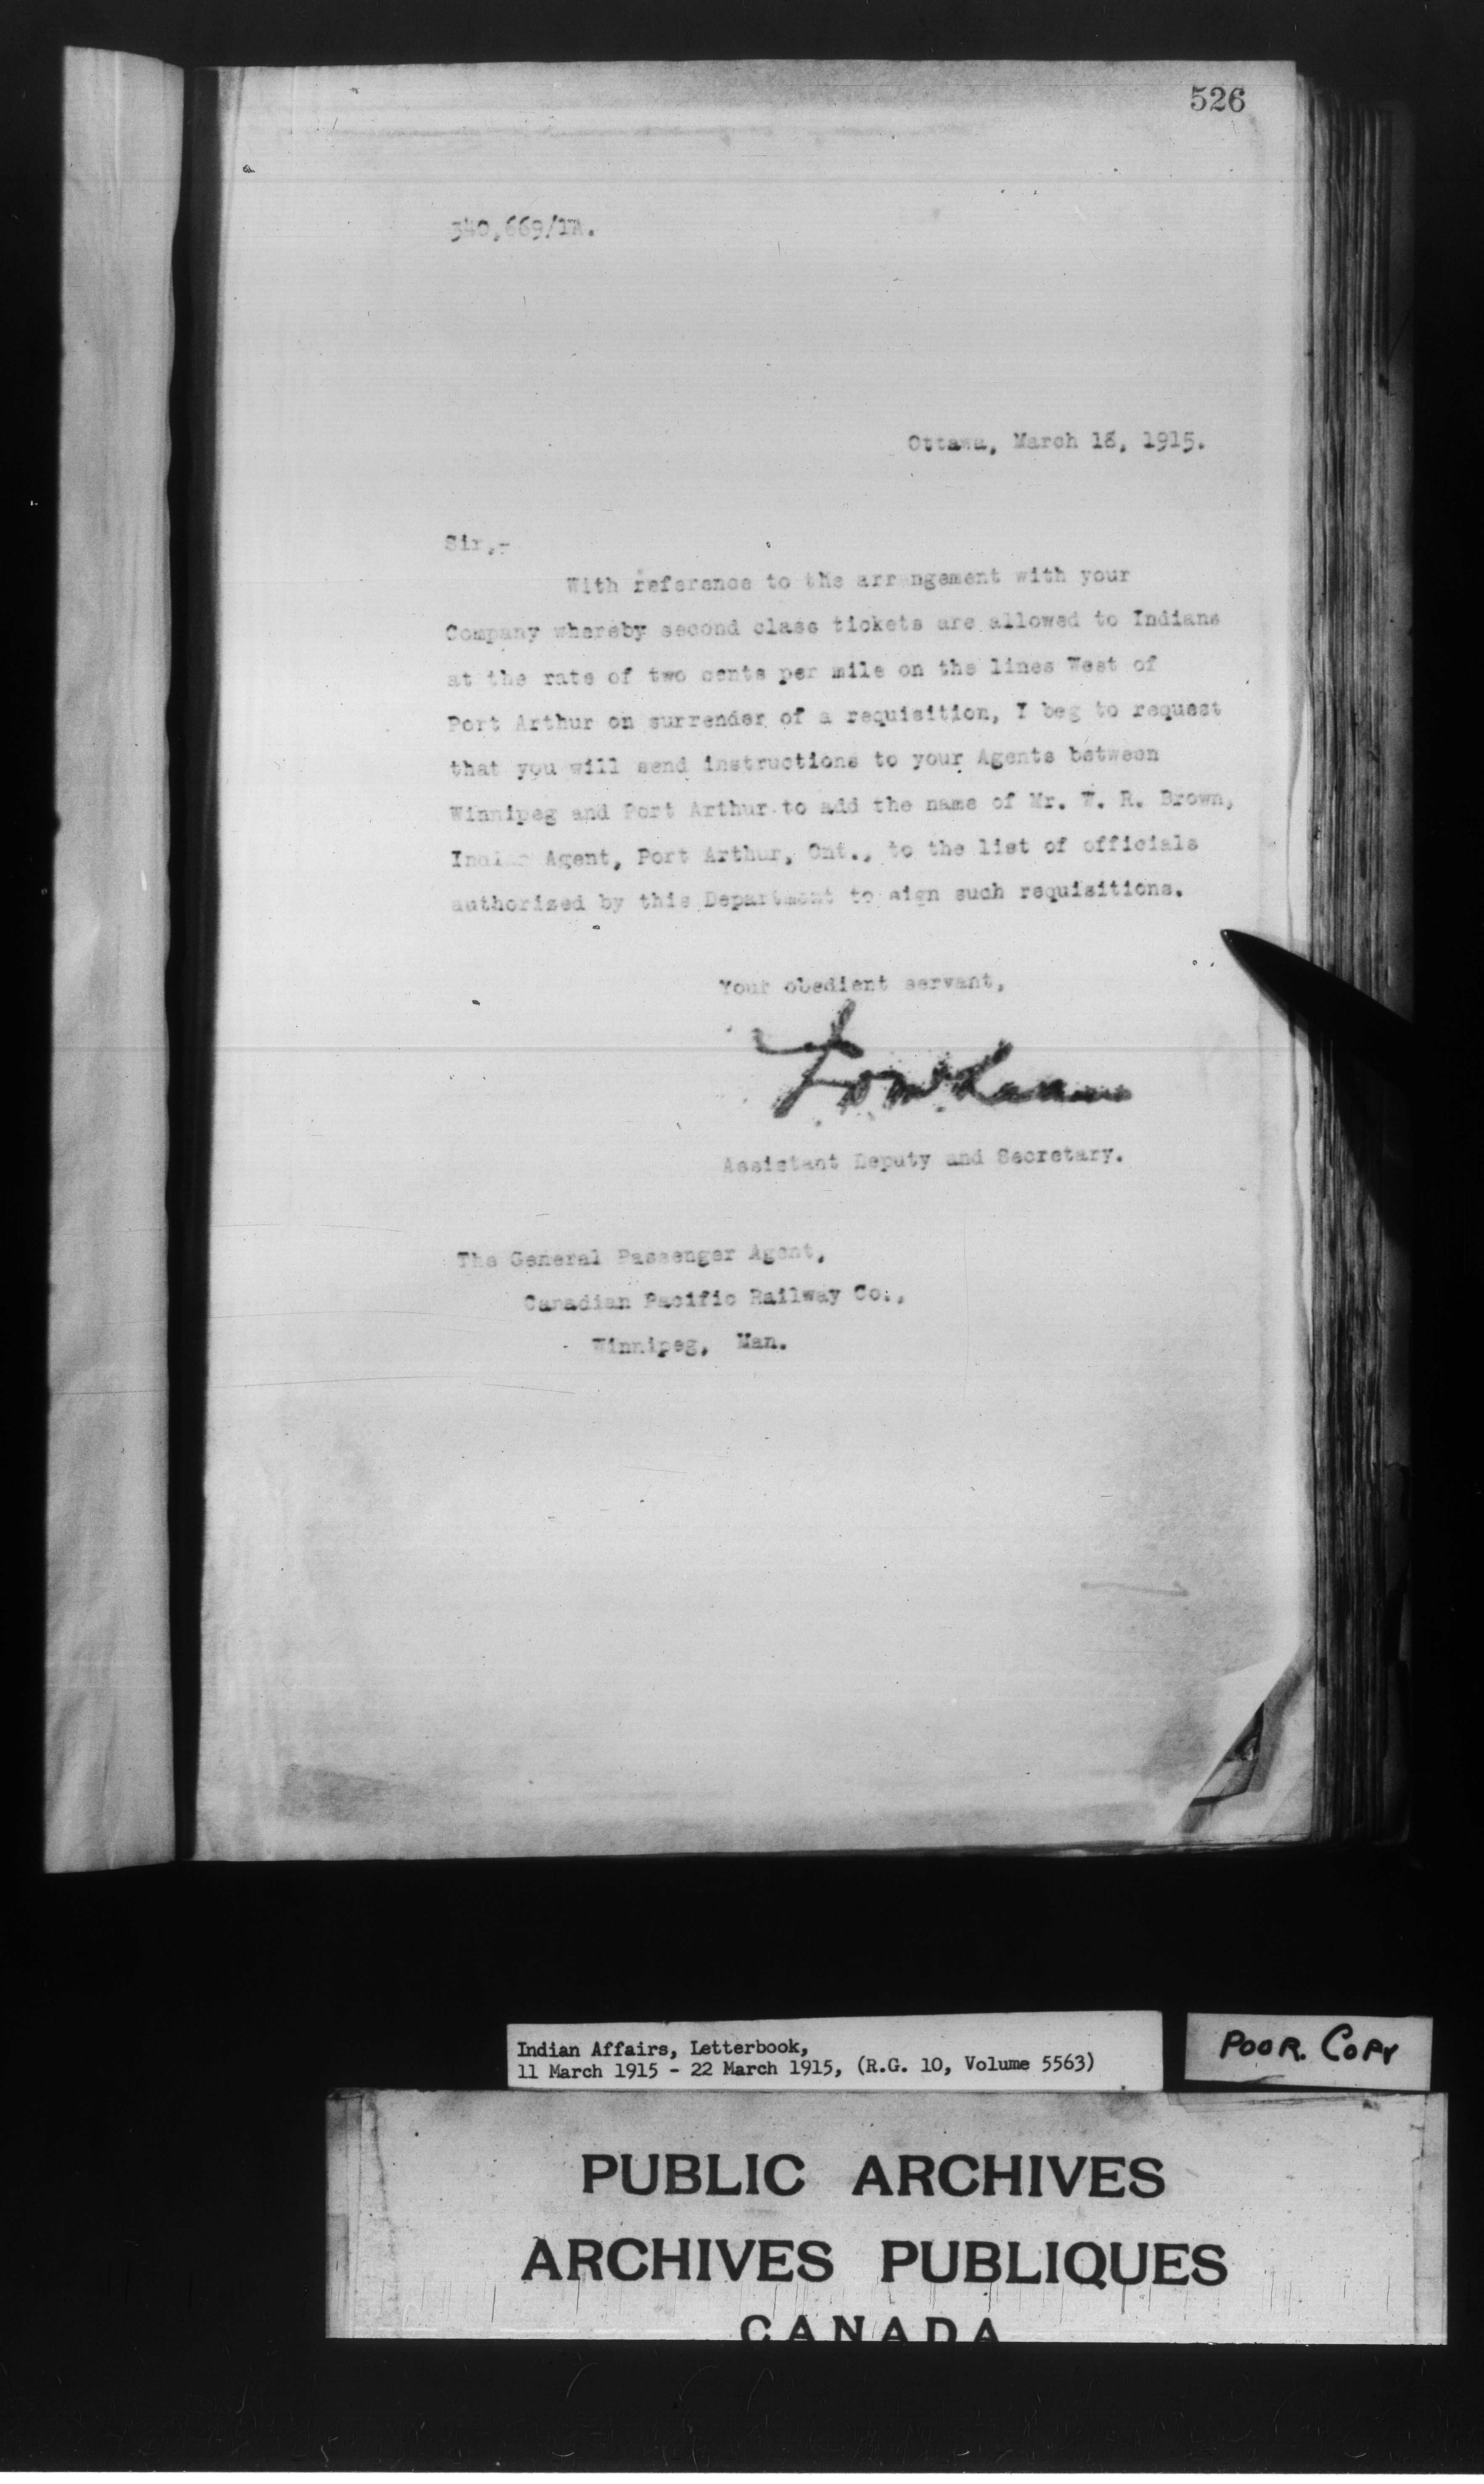 526
340,669/1A.
Ottawa, March 18, 1915.
Sir,-
With reference to the arrangement with your
Company whereby second class tickets are allowed to Indians
at the rate of two cents per mile on the lines West of
Port Arthur on surrender of a requisition, I beg to request
that you will send instructions to your Agents between
Winnipeg and Port Arthur to add the name of Mr. W. R. Brown,
Indian Agent, Port Arthur, Ont., to the list of officials
authorized by this Department to sign such requisitions.
Your obedient servant,
Assistant Deputy and Secretary.
The General Passenger Agent,
Canadian Pacific Railway Co.,
Winnipeg, Man.
Indian Affairs, Letterbook,
11 March 1915 - 22 March 1915, (R.G. 10, Volume 5563)
POOR. COPY
PUBLIC ARCHIVES
ARCHIVES PUBLIQUES
CANADA